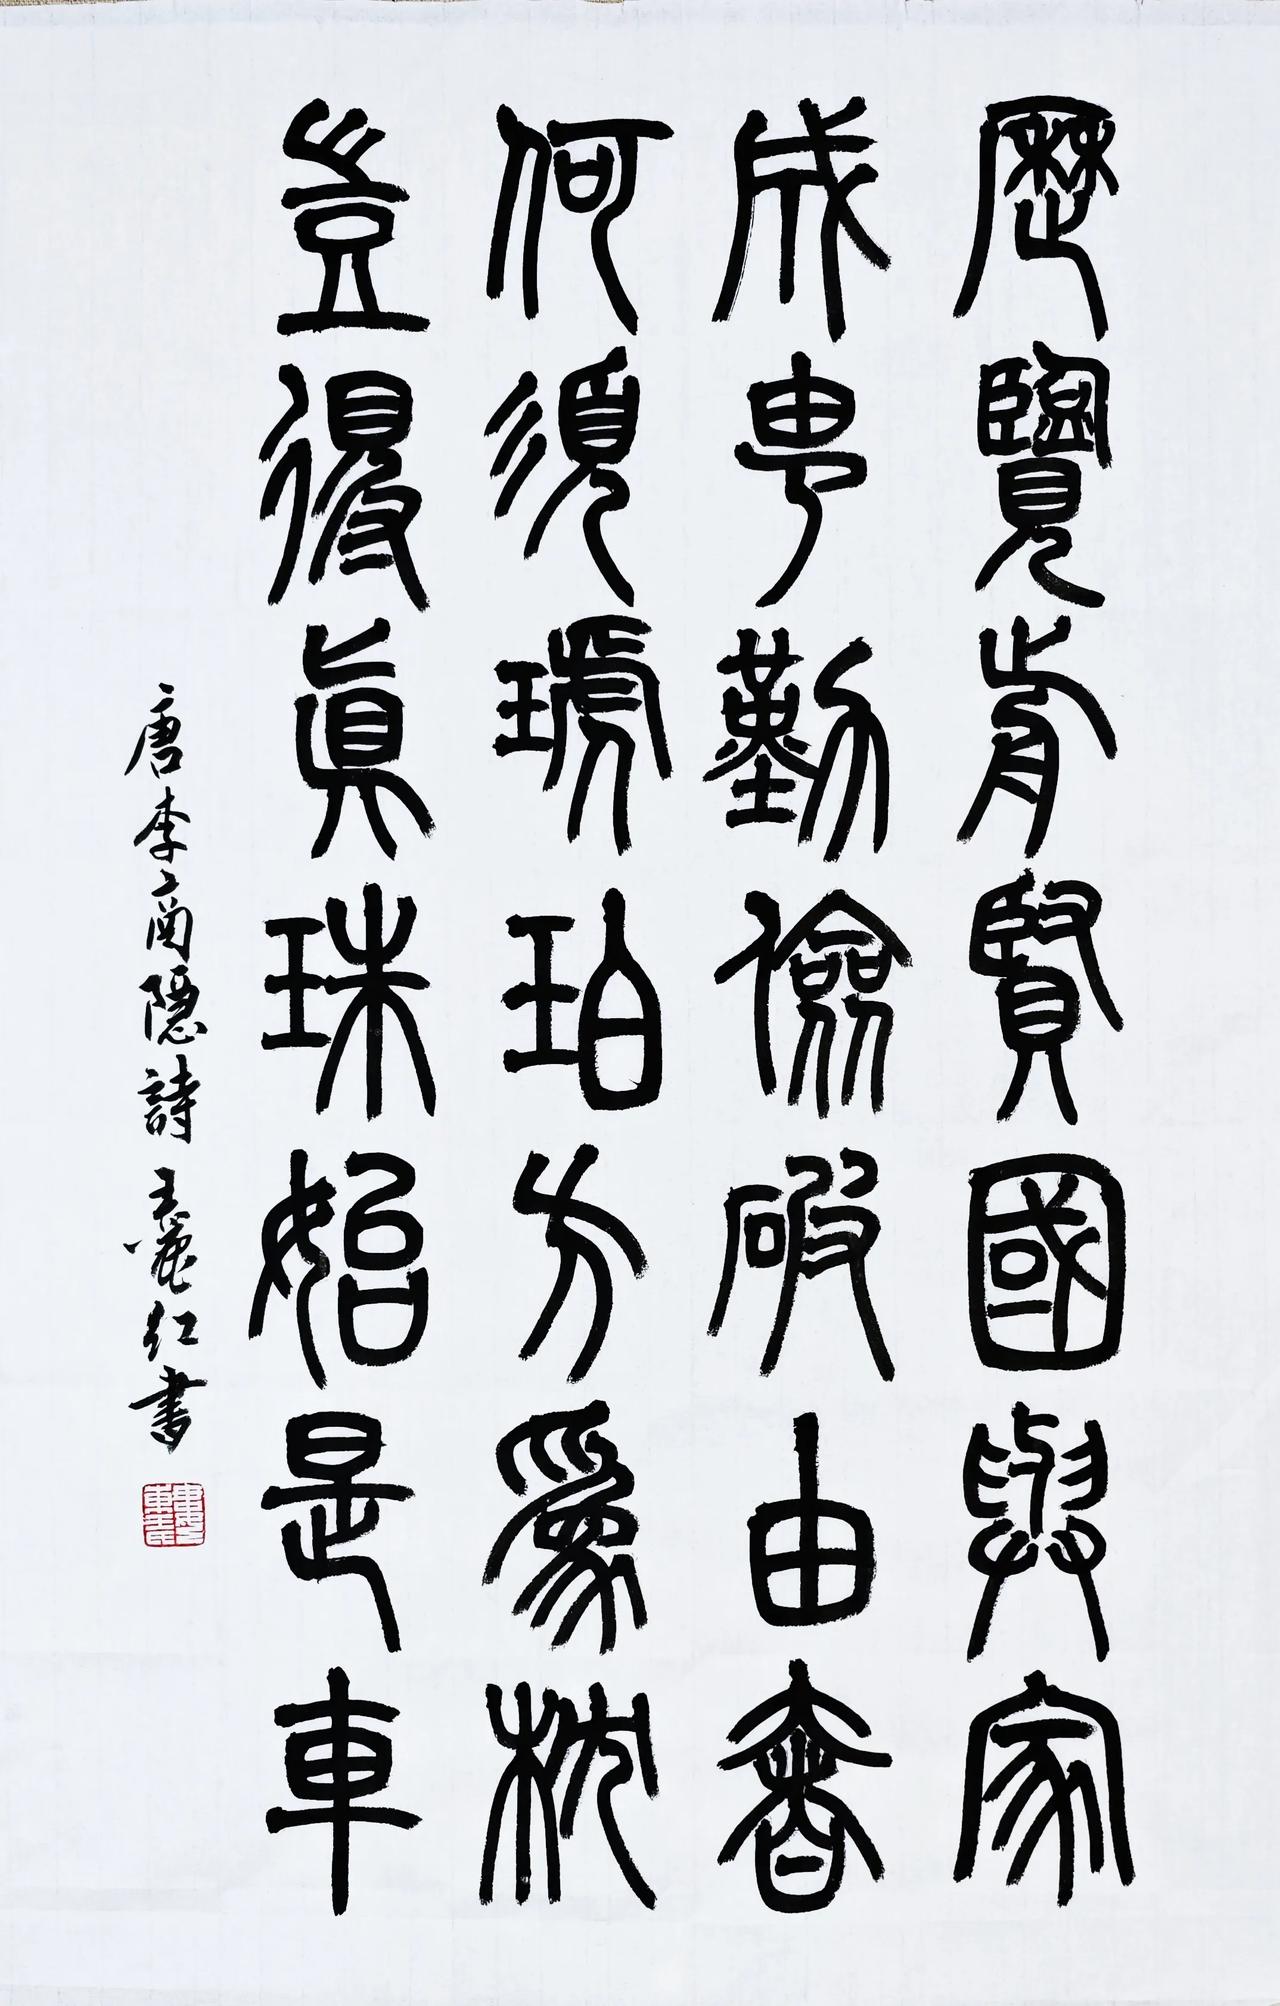 歷覽前賢國與家
成由勤儉破由奢
何須琥珀方爲枕
豈得真珠始是車
唐李商隱詩 王麗紅書